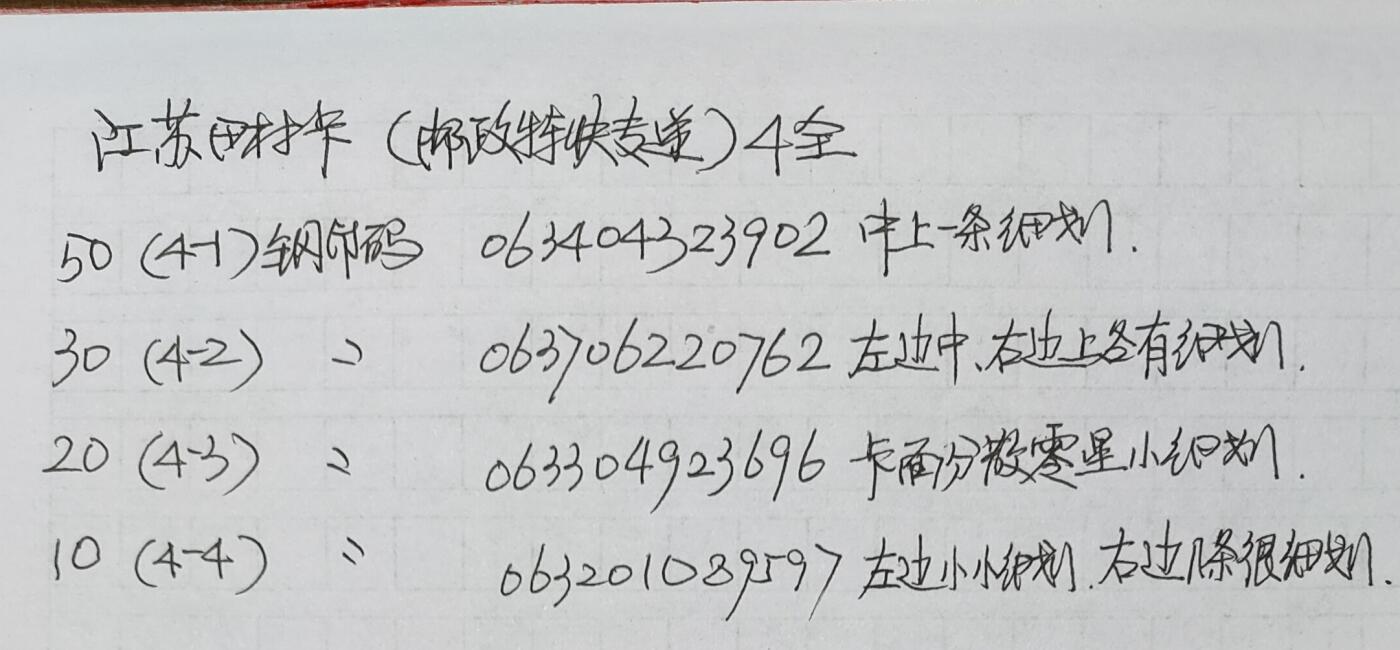 江苏田村卡（邮政特快专递）4全
50（4-1）钢印码 063404323902 中上一条细划.
30（4-2） 〃 063706220762 左边中、右边上各有细划.
20（4-3） 〃 063304923696 卡面分散零星小细划.
10（4-4） 〃 063201089597 左边小小细划.右边1条很细划.